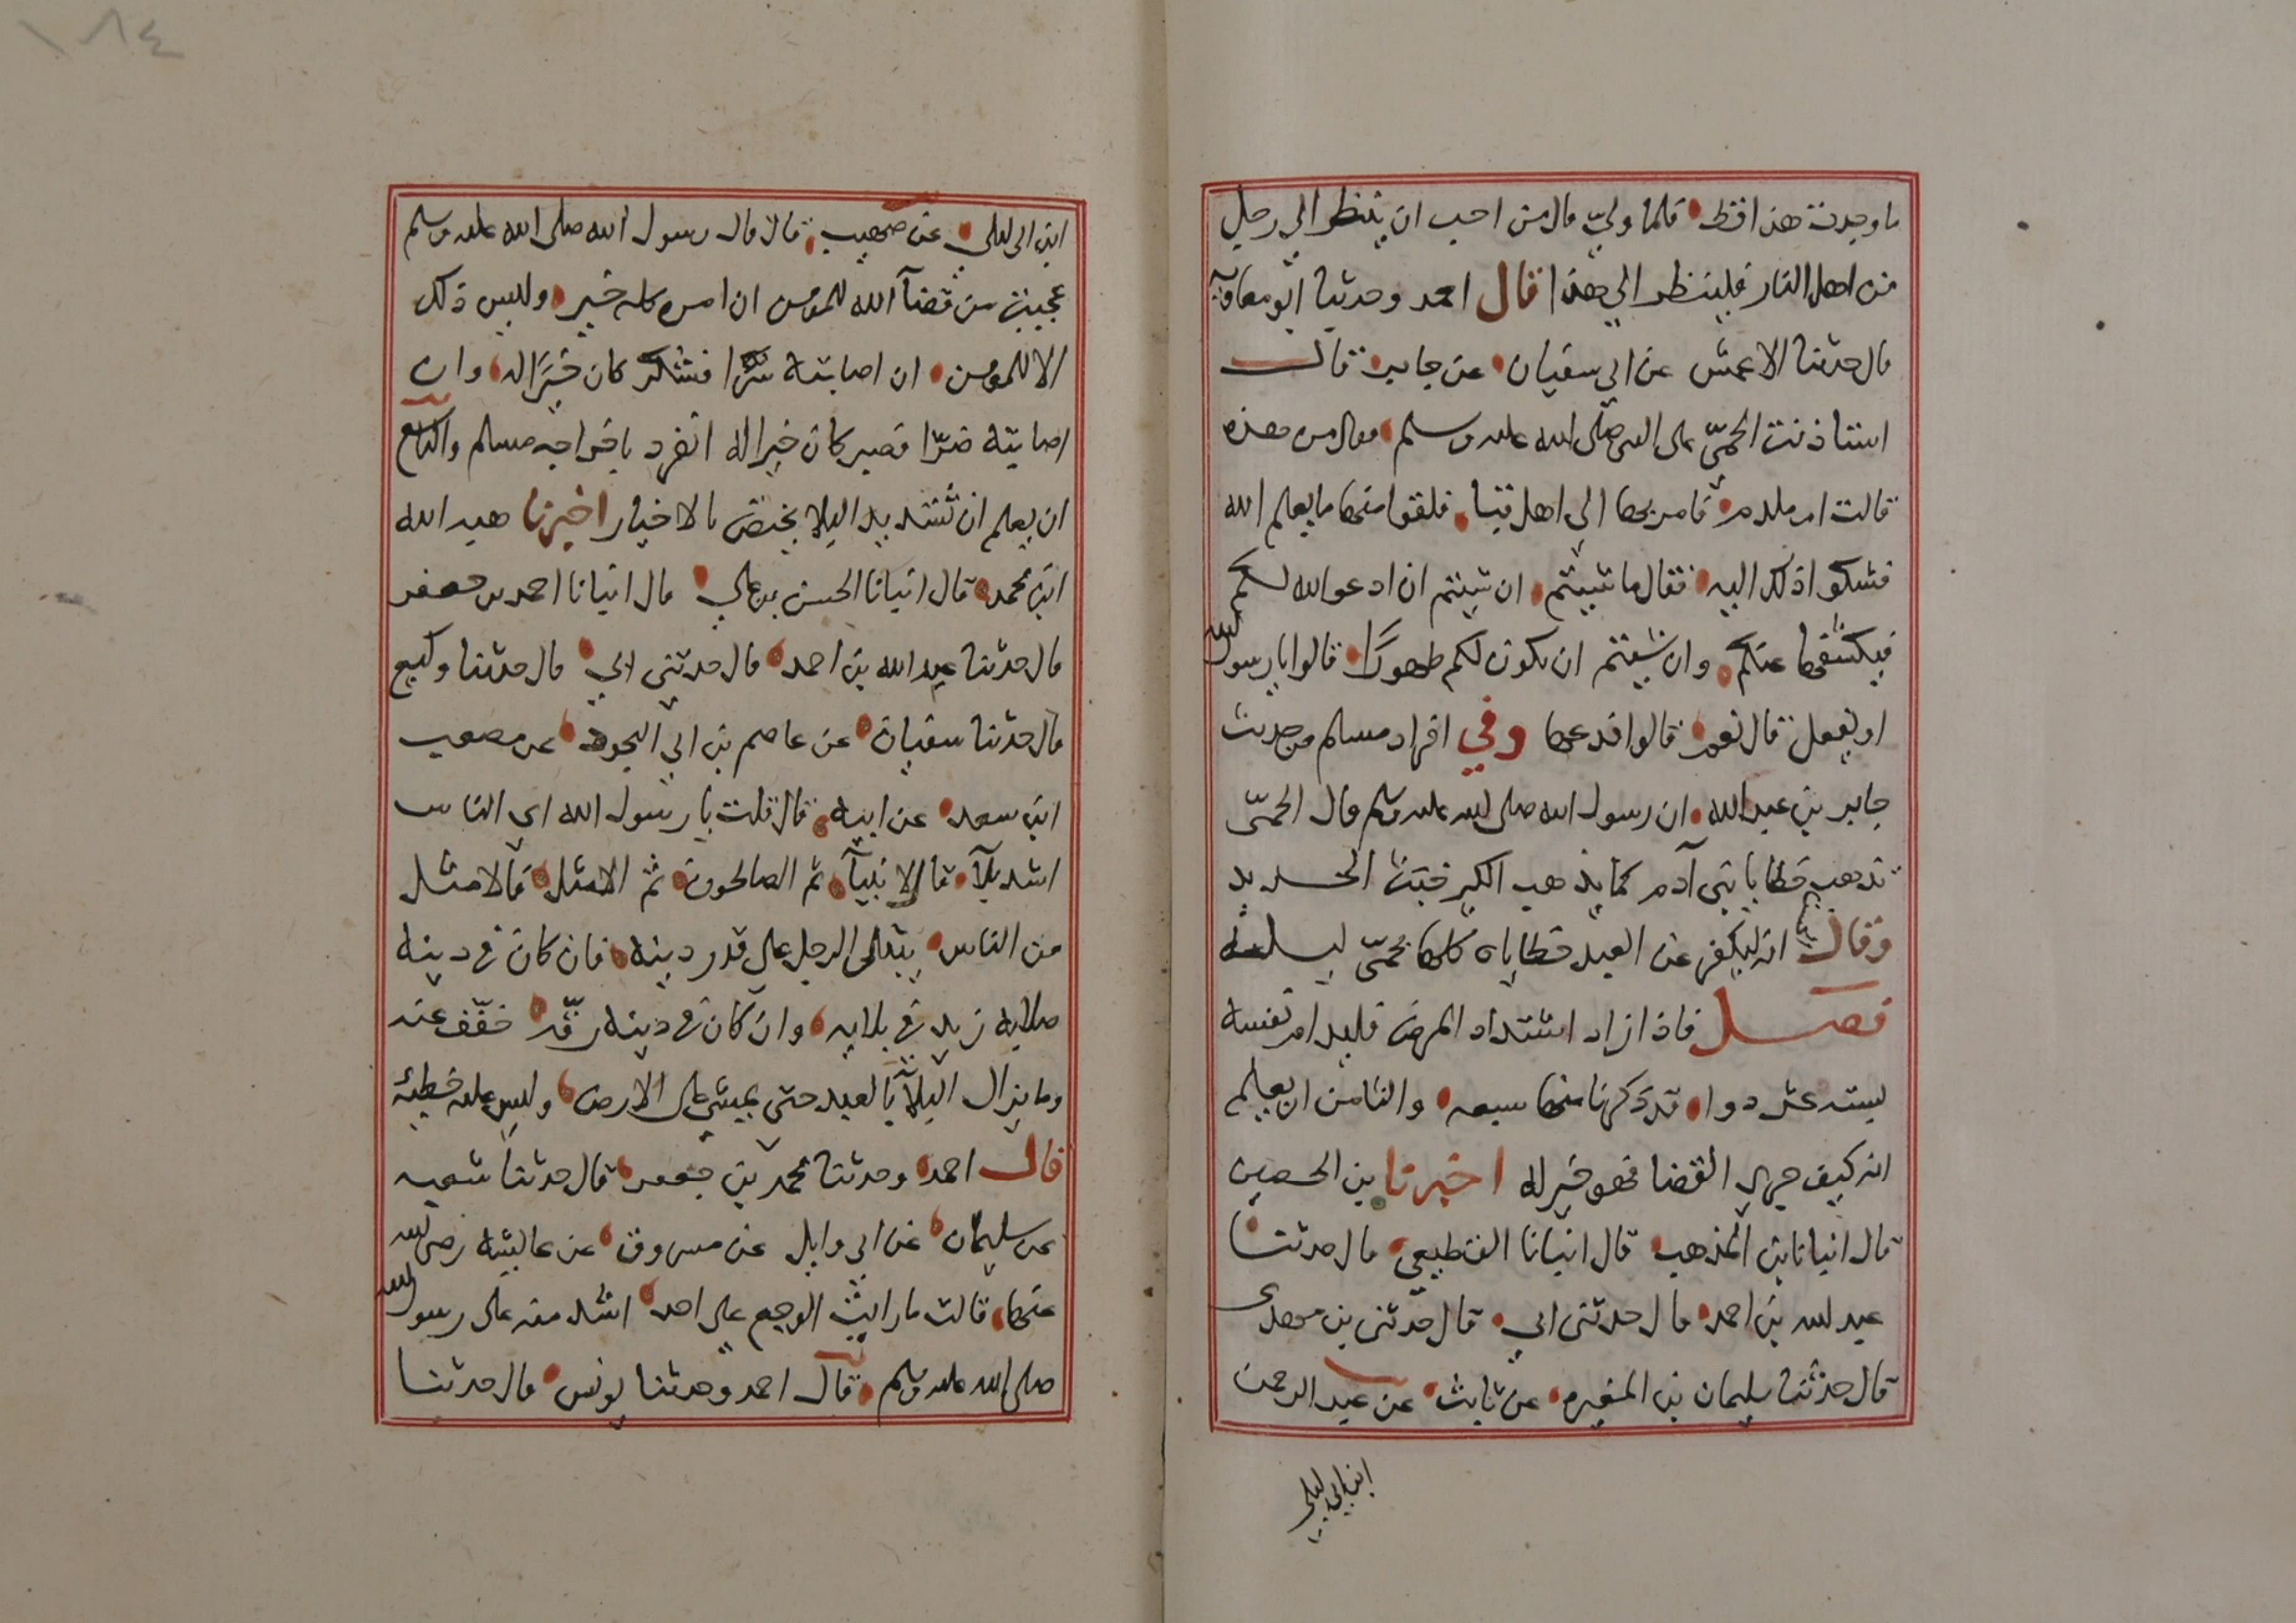 ما وجدت هذا قط فلما ولي قال من احب ان ينظر الي رجل
من اهل النار فلينظر الي هذا قال احمد وحدثنا ابو معاوية
قال حدثنا الاعمش عن ابي سفيان عن جابر قال
استاذنت الحمّي على النبي صلى الله عليه وسلم فقال من هذه
قالت ام ملدم فامر بها الي اهل قبا فلقوا منها ما يعلم الله
فشكوا ذلك اليه فقال ما شيتم ان شيتم ان ادعو الله لكم
فيكشفها عنكم وان شيتم ان يكون لكم طهورًا قالوا يا رسول الله
او يفعل قال نعم قالوا فدعها وفي افراد مسلم من حديث
جابر بن عبد الله ان رسول الله صلى الله عليه وسلم قال الحمّى
تذهب خطايا بني آدم كما يذهب الكير خبث الحديد
وقال انه ليكفر عن العبد خطاياه كلها بحمّي ليلة
فصل فاذا زاد اشتداد المرض فليداو نفسه
بستة عشر دوا قد ذكرنا منها سبعه والثامن ان يعلم
انه كيف جري القضا فهو خير له اخبرنا بن الحصين
قال انبانا بن المذهب قال انبانا القطيعي قال حدثنا
عبد الله بن احمد قال حدثنى ابي قال حدثنى بن مهدى
قال حدثنا سليمان بن المغيره عن ثابت عن عبد الرحمن
ابن ابي ليلى
١٨٤
ابن ابى ليلي عن صهيب قال قال رسول الله صلى الله عليه وسلم
عجبت من قضآ الله للمومن ان امره كله خير وليس ذلك
الا للمومن ان اصابته سرّا فشكر كان خيرًا له وان
اصابته ضرّا فصبر كان خيرا له انفرد باخراجه مسلم والتاسع
ان يعلم ان تشديد البلا يخص بالاخيار اخبرنا هبه الله
ابن محمد قال انبانا الحسن بن علي قال انبانا احمد بن جعفر
قال حدثنا عبد الله بن احمد قال حدثنى ابي قال حدثنا وكيع
قال حدثنا سفيان عن عاصم بن ابي النجود عن مصعب
ابن سعد عن ابيه قال قلت يا رسول الله اي الناس
اشد بلآ قال الانبيآ ثم الصالحون ثم الامثل فالامثل
من الناس يبتلى الرجل على قدر دينه فان كان في دينه
صلابه زيد في بلايه وان كان في دينه رقّه خفّف عنه
وما يزال البلآ بالعبد حتى يمشي على الارض وليس عليه خطيئه
قال احمد وحدثنا محمد بن جعفر قال حدثنا شعبه
عن سليمان عن ابي وايل عن مسروق عن عايشه رضي الله
عنها قالت ما رايت الوجع على احد اشد منه على رسول الله
صلى الله عليه وسلم قال احمد وحدثنا يونس قال حدثنا